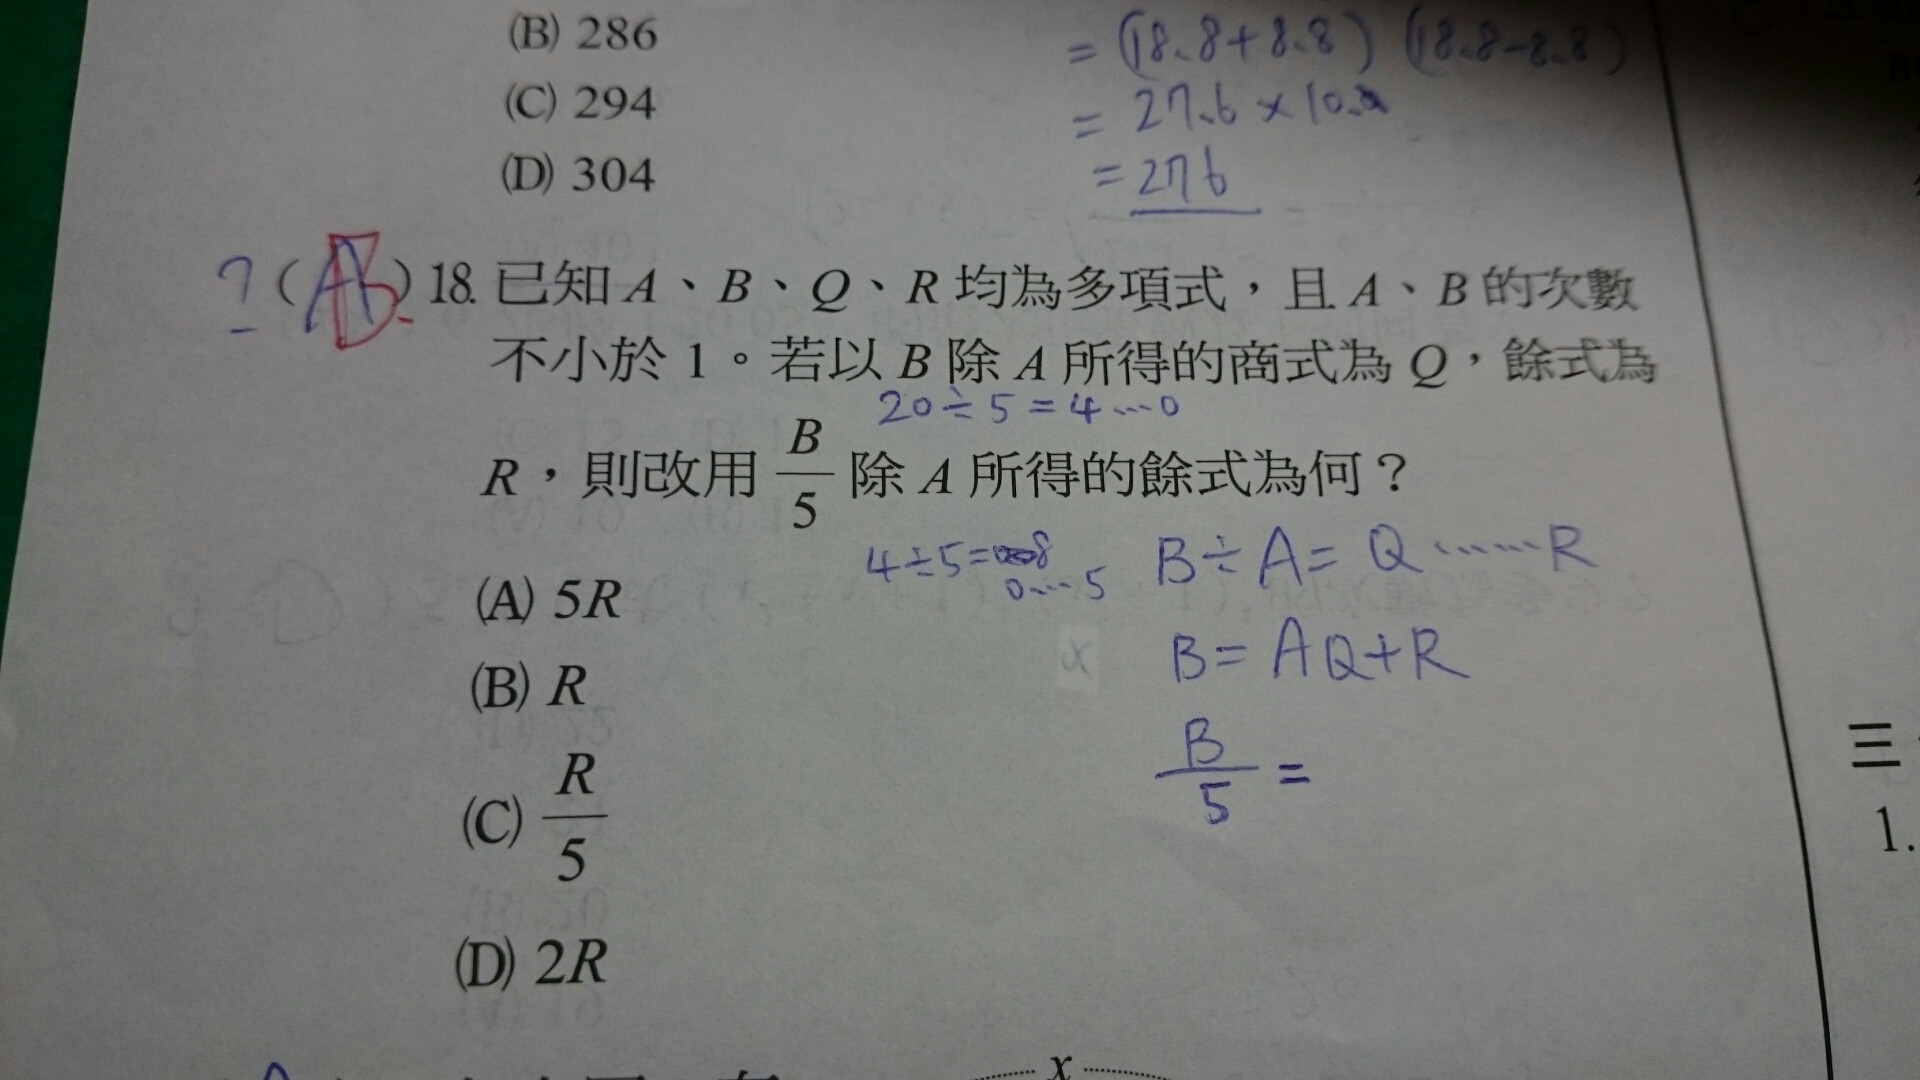 (B) 286
(C) 294
(D) 304
= (18.8+8.8) (18.8-8.8)
= 27.6 × 10.
= 276
? ( ) 18. 已知 A、B、Q、R 均為多項式，且 A、B 的次數
不小於 1。若以 B 除 A 所得的商式為 Q，餘式為
20÷5=4…0
R，則改用 B/5 除 A 所得的餘式為何？
4÷5=
0…5
B÷A= Q……R
B= AQ+R
B/5 =
(A) 5R
(B) R
(C) R/5
(D) 2R
x
三
1.